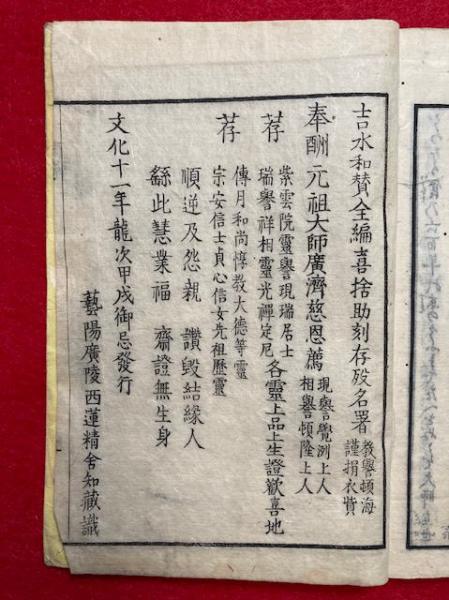 吉水和賛全編喜捨助刻存歿名署
教譽頓海
謹捐衣貲
奉酬元祖大師廣濟慈恩薦
現譽覺洲上人
相譽頓隆上人
荐
紫雲院靈譽現瑞居士
瑞譽祥相靈光禪定尼
各靈上品上生證歡喜地
荐
傳月和尚惇教大德等靈
宗安信士貞心信女先祖歷靈
順逆及怨親 讚毀結緣人
繇此慧業福 齊證無生身
文化十一年龍次甲戌御忌發行
藝陽廣陵西蓮精舍知藏識